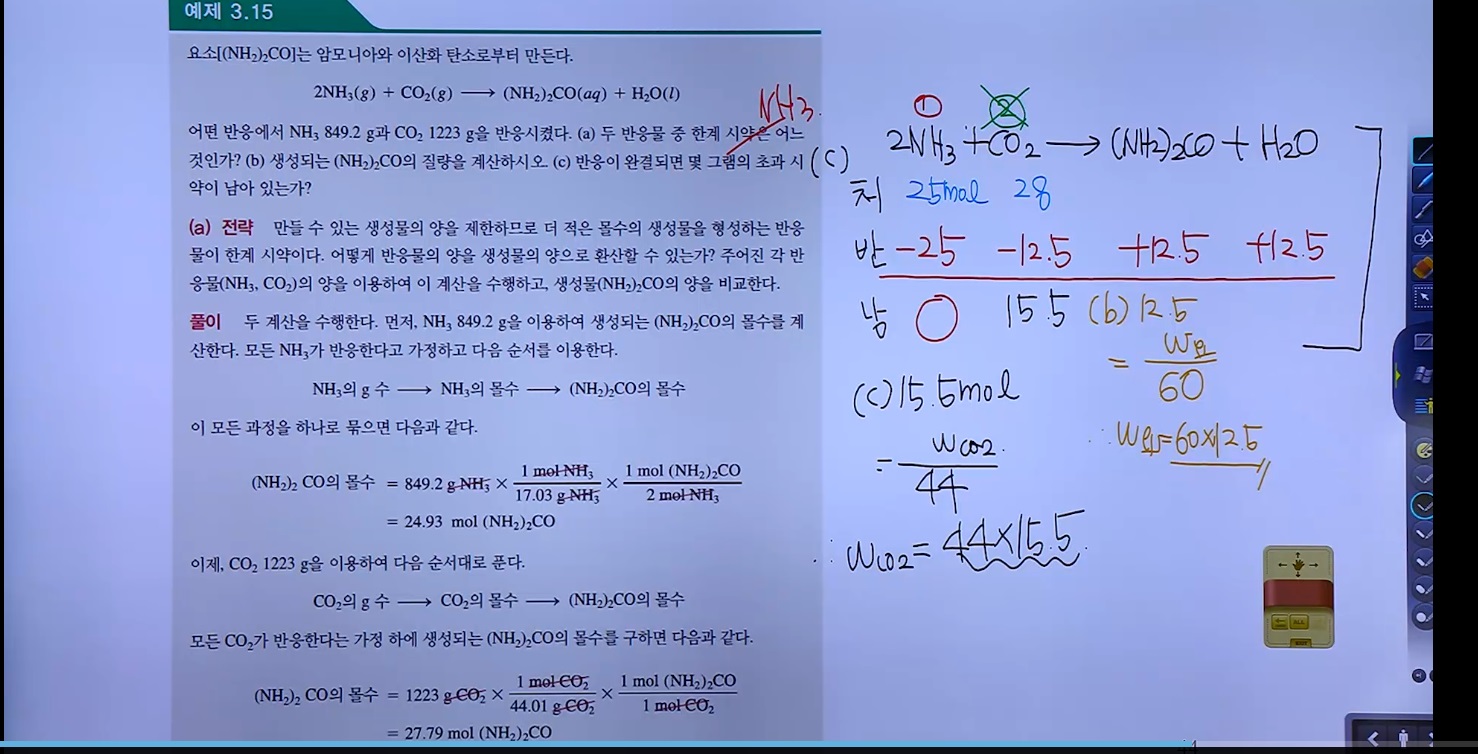 예제 3.15
요소[(NH₂)₂CO]는 암모니아와 이산화 탄소로부터 만든다.
2NH₃(g) + CO₂(g) ⟶ (NH₂)₂CO(aq) + H₂O(l)
어떤 반응에서 NH₃ 849.2 g과 CO₂ 1223 g을 반응시켰다. (a) 두 반응물 중 한계 시약은 어느
것인가? (b) 생성되는 (NH₂)₂CO의 질량을 계산하시오. (c) 반응이 완결되면 몇 그램의 초과 시
약이 남아 있는가?
(a) 전략 만들 수 있는 생성물의 양을 제한하므로 더 적은 몰수의 생성물을 형성하는 반응
물이 한계 시약이다. 어떻게 반응물의 양을 생성물의 양으로 환산할 수 있는가? 주어진 각 반
응물(NH₃, CO₂)의 양을 이용하여 이 계산을 수행하고, 생성물(NH₂)₂CO의 양을 비교한다.
풀이 두 계산을 수행한다. 먼저, NH₃ 849.2 g을 이용하여 생성되는 (NH₂)₂CO의 몰수를 계
산한다. 모든 NH₃가 반응한다고 가정하고 다음 순서를 이용한다.
NH₃의 g 수 ⟶ NH₃의 몰수 ⟶ (NH₂)₂CO의 몰수
이 모든 과정을 하나로 묶으면 다음과 같다.
(NH₂)₂ CO의 몰수 = 849.2 g NH₃ × 1 mol NH₃ / 17.03 g NH₃ × 1 mol (NH₂)₂CO / 2 mol NH₃
= 24.93 mol (NH₂)₂CO
이제, CO₂ 1223 g을 이용하여 다음 순서대로 푼다.
CO₂의 g 수 ⟶ CO₂의 몰수 ⟶ (NH₂)₂CO의 몰수
모든 CO₂가 반응한다는 가정 하에 생성되는 (NH₂)₂CO의 몰수를 구하면 다음과 같다.
(NH₂)₂ CO의 몰수 = 1223 g CO₂ × 1 mol CO₂ / 44.01 g CO₂ × 1 mol (NH₂)₂CO / 1 mol CO₂
= 27.79 mol (NH₂)₂CO
NH₃
① ②
(c) 2NH₃ + CO₂ ⟶ (NH₂)₂CO + H₂O
처 25mol 28
반 -25 -12.5 +12.5 +12.5
남 0 15.5 (b) 12.5
= W요 / 60
∴ W요 = 60×12.5
(c) 15.5mol
= Wco₂ / 44
∴ Wco₂ = 44×15.5
ALL